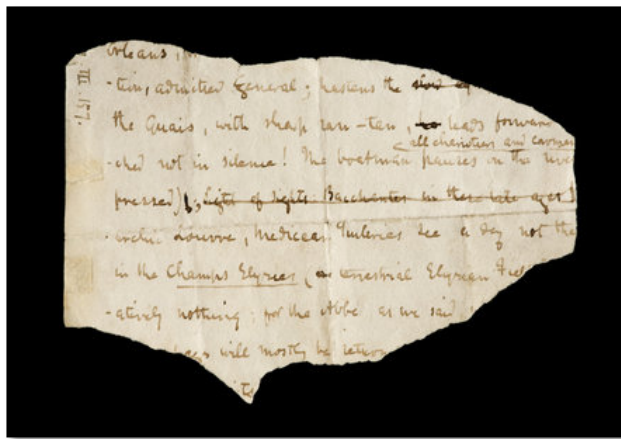 orleans,
-tein, admitted General; hastens the
the Quais, with sharp ran-tan, leads forward
(all charioteers and
-ched not in silence! The boatman pauses on the rive
pressed), sight of sights Bacchantes in these late ages)
-archic Louvre, Medicean Tuileries see a day not the
in the Champs Elysees (or terrestrial Elysian Fiel
-atively nothing; for the Abbé as we said
will mostly be return
III. 157.